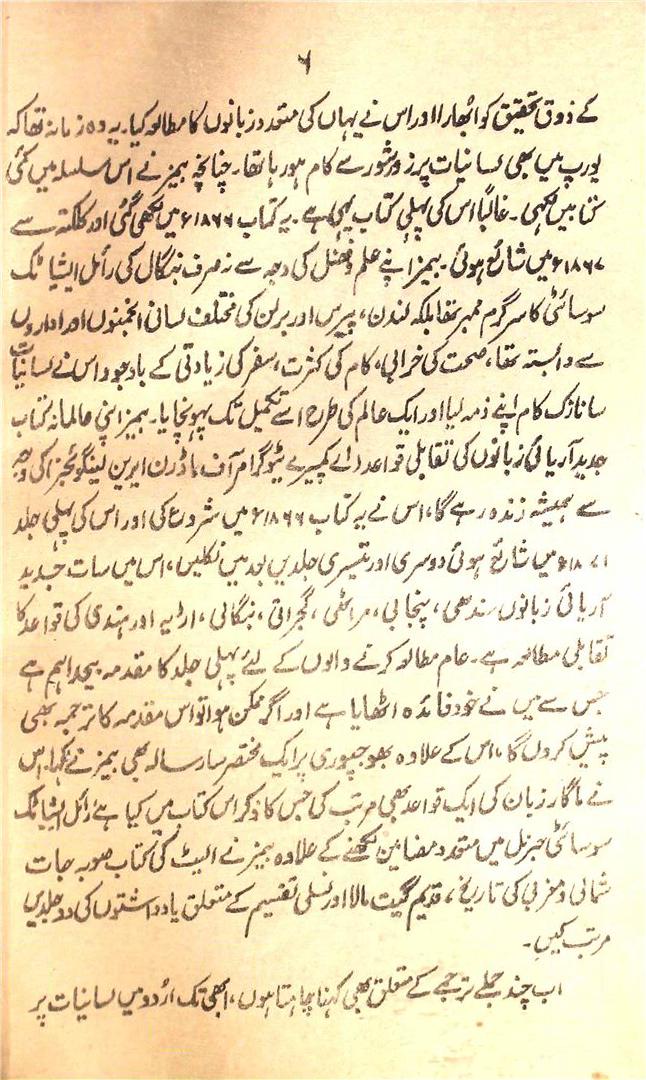 ۶
کے ذوق تحقیق کو ابھارا اور اس نے یہاں کی متعدد زبانوں کا مطالعہ کیا۔ یہ وہ زمانہ تھا کہ
یورپ میں بھی لسانیات پر زور شور سے کام ہو رہا تھا۔ چنانچہ بیمز نے اس سلسلہ میں کئی
کتابیں لکھی۔ غالباً اس کی پہلی کتاب یہی ہے۔ یہ کتاب ۱۸۶۶ء میں لکھی گئی اور کلکتہ سے
۱۸۶۷ء میں شائع ہوئی۔ بیمز اپنے علم و فضل کی وجہ سے نہ صرف بنگال کی رائل ایشیاٹک
سوسائٹی کا سرگرم ممبر تھا بلکہ لندن، پیرس اور برلن کی مختلف لسانی انجمنوں اور اداروں
سے وابستہ تھا، صحت کی خرابی، کام کی کثرت، سفر کی زیادتی کے باوجود اس نے لسانیات
سا نازک کام اپنے ذمہ لیا اور ایک عالم کی طرح اسے تکمیل تک پہونچایا۔ بیمز اپنی عالمانہ کتاب
جدید آریائی زبانوں کی تقابلی قواعد (اے کمپیرے ٹیو گرامر آف ماڈرن ایرین لینگوئجز) کی وجہ
سے ہمیشہ زندہ رہے گا، اس نے یہ کتاب ۱۸۶۶ء میں شروع کی اور اس کی پہلی جلد
۱۸۷۱ء میں شائع ہوئی دوسری اور تیسری جلدیں بعد میں نکلیں، اس میں سات جدید
آریائی زبانوں سندھی، پنجابی، مراٹھی، گجراتی، بنگالی، اڑیہ اور ہندی کی قواعد کا
تقابلی مطالعہ ہے۔ عام مطالعہ کرنے والوں کے لئے پہلی جلد کا مقدمہ بیحد اہم ہے
جس سے میں نے خود فائدہ اٹھایا ہے اور اگر ممکن ہوا تو اس مقدمہ کا ترجمہ بھی
پیش کروں گا، اس کے علاوہ بھوجپوری پر ایک مختصر سا رسالہ بھی بیمز نے لکھا، اس
نے ماگار زبان کی ایک قواعد بھی مرتب کی جس کا ذکر اس کتاب میں کیا ہے رائل ایشیاٹک
سوسائٹی جرنل میں متعدد مضامین لکھنے کے علاوہ بیمز نے الیٹ کی کتاب صوبہ جات
شمالی و مغربی کی تاریخ، قدیم گیت مالا اور نسلی تقسیم کے متعلق یادداشتوں کی دو جلدیں
مرتب کیں۔
اب چند جملے ترجمے کے متعلق بھی کہنا چاہتا ہوں، ابھی تک اردو میں لسانیات پر